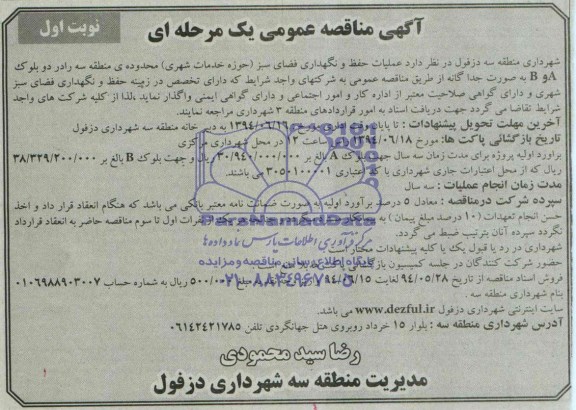 نوبت اول
آگهی مناقصه عمومی یک مرحله ای
شهرداری منطقه سه دزفول در نظر دارد عملیات حفظ و نگهداری فضای سبز (حوزه خدمات شهری) محدوده ی منطقه سه رادر دو بلوک
A و B به صورت جدا گانه از طریق مناقصه عمومی به شرکتهای واجد شرایط که دارای تخصص در زمینه حفظ و نگهداری فضای سبز
شهری و دارای گواهی صلاحیت معتبر از اداره کار و امور اجتماعی و دارای گواهی ایمنی واگذار نماید ،لذا از کلیه شرکت های واجد
شرایط تقاضا می گردد جهت دریافت اسناد به امور قراردادهای منطقه ۳ شهرداری مراجعه نمایند.
آخرین مهلت تحویل پیشنهادات : تا پایان وقت اداری مورخ ۱۳۹۴/۰۶/۱۶ به دبیر خانه منطقه سه شهرداری دزفول
تاریخ بازگشائی پاکت ها: مورخ ۱۳۹۴/۰۶/۱۸ ساعت ۱۲ در محل شهرداری مرکزی
براورد اولیه پروژه برای مدت زمان سه سال جهت بلوک A بالغ بر ۳۰/۹۴۰/۰۰۰/۰۰۰ ریال و جهت بلوک B بالغ بر ۳۸/۳۲۹/۲۰۰/۰۰۰
ریال که از محل اعتبارات جاری شهرداری با کد اعتباری ۳۰۵۰۱۰۰۰۰۱ می باشند.
مدت زمان انجام عملیات : سه سال
سپرده شرکت درمناقصه : معادل ۵ درصد براورد اولیه به صورت ضمانت نامه معتبر بانکی می باشد که هنگام انعقاد قرار داد و اخذ
حسن انجام تعهدات (۱۰ درصد مبلغ پیمان) به پیمانکار نفرات اول تا سوم مناقصه حاضر به انعقاد قرارداد
نگردد سپرده آنان بترتیب ضبط می گردد.
شهرداری در رد یا قبول یک یا کلیه پیشنهادات مختار است
حضور شرکت کنندگان در جلسه کمیسیون بازگشائی
فروش اسناد مناقصه از تاریخ ۹۴/۰۵/۲۸ لغایت ۹۴/۰۶/۱۵ مبلغ ۵۰۰/۰۰۰ ریال به شماره حساب ۰۱۰۶۹۸۸۹۰۳۰۰۷
بنام شهرداری منطقه سه .
سایت اینترنتی شهرداری دزفول www.dezful.ir می باشد.
آدرس شهرداری منطقه سه : بلوار ۱۵ خرداد روبروی هتل جهانگردی تلفن ۰۶۱۴۲۴۲۱۷۸۵
رضا سید محمودی
مدیریت منطقه سه شهرداری دزفول
ParsNamadData
مرکز فرآوری اطلاعات پارس نماد داده ها
پایگاه اطلاع رسانی مناقصه و مزایده
۰۲۱-۸۸۳۴۹۶۷۰-۵